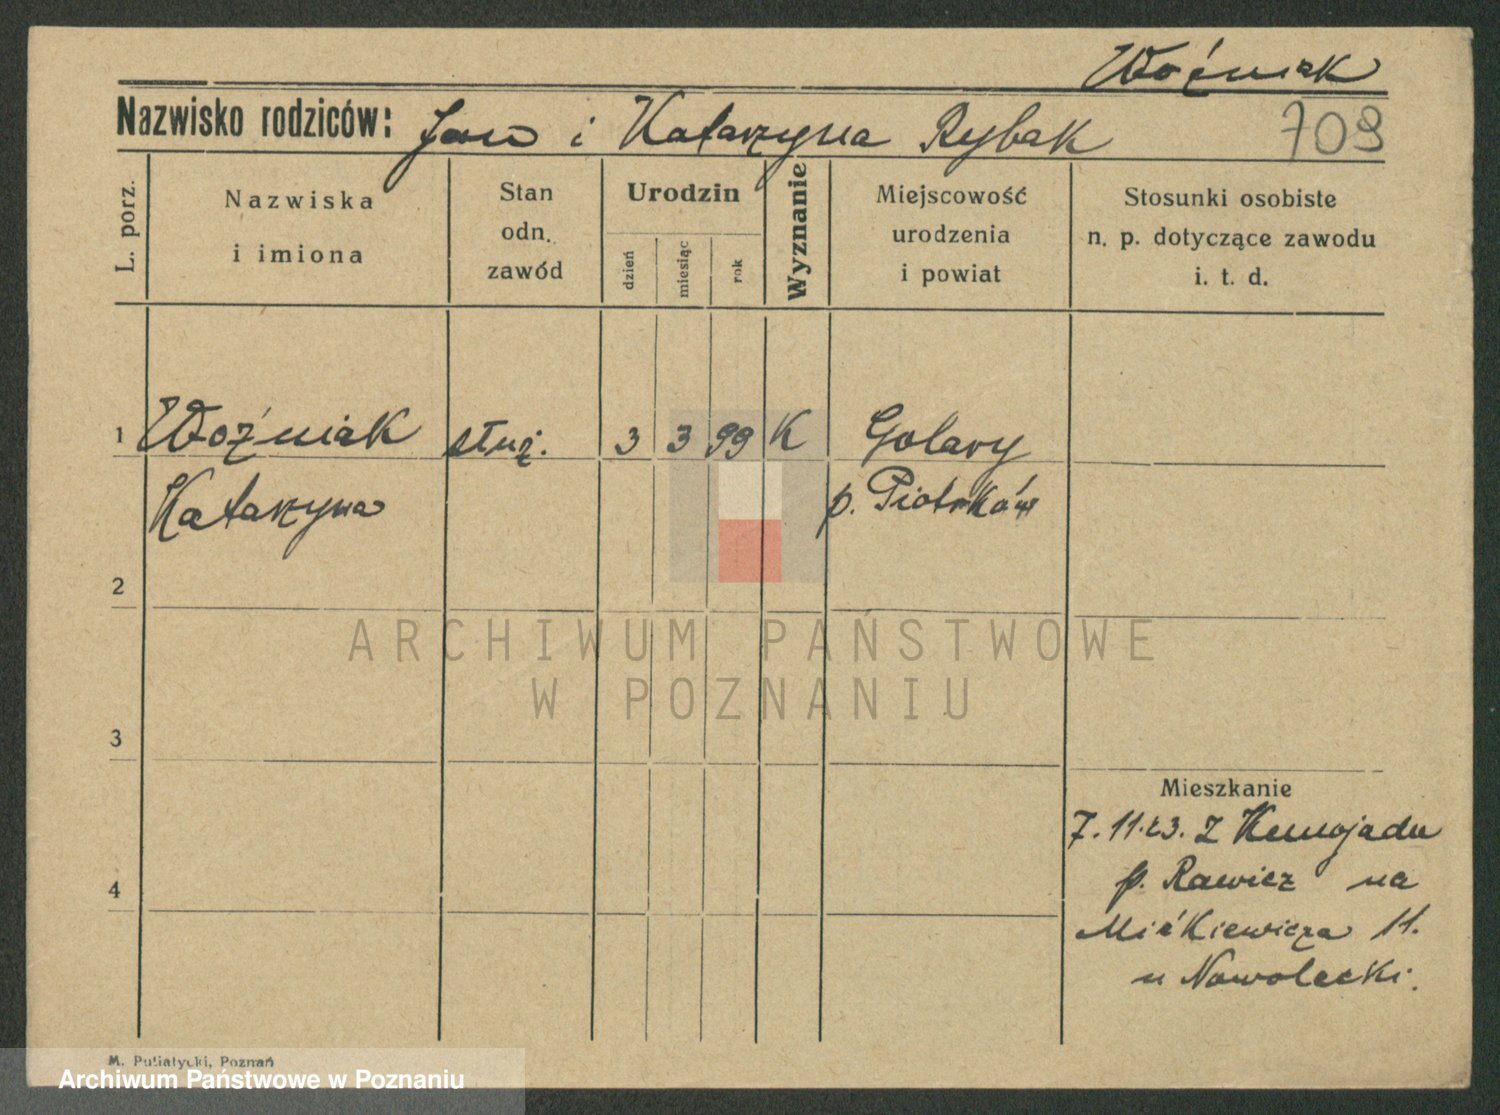 Woźniak
Nazwisko rodziców: Jan i Katarzyna Rybak
709
L. porz.
Nazwiska
i imiona
Stan
odn.
zawód
Urodzin
dzień
miesiąc
rok
Wyznanie
Miejscowość
urodzenia
i powiat
Stosunki osobiste
n. p. dotyczące zawodu
i. t. d.
1 Woźniak służ. 3 3 99 K Golary
Katarzyna p. Piotrków
2
ARCHIWUM PAŃSTWOWE
W POZNANIU
3
Mieszkanie
7. 11. 23. z
p. Rawicz na
4
Mickiewicza 11.
u Nowolecki.
M. Putiatycki, Poznań
Archiwum Państwowe w Poznaniu